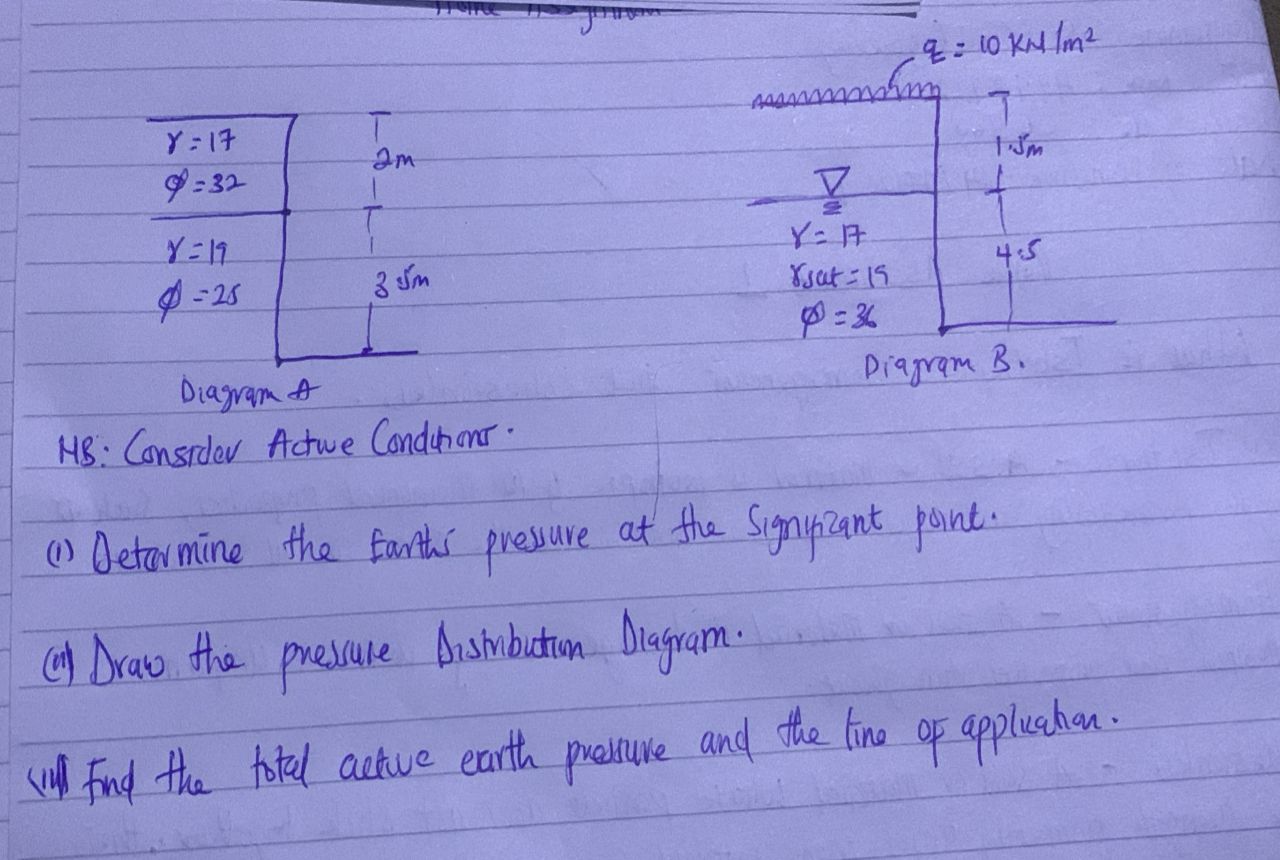 q = 10 KN/m²
γ = 17
φ = 32
2m
γ = 19
φ = 25
3.5m
Diagram A
1.5m
γ = 17
γsat = 19
φ = 36
4.5
Diagram B.
NB: Consider Active Conditions.
(i) Determine the Earth's pressure at the Significant point.
(ii) Draw the pressure Distribution Diagram.
(iii) Find the total active earth pressure and the line of application.